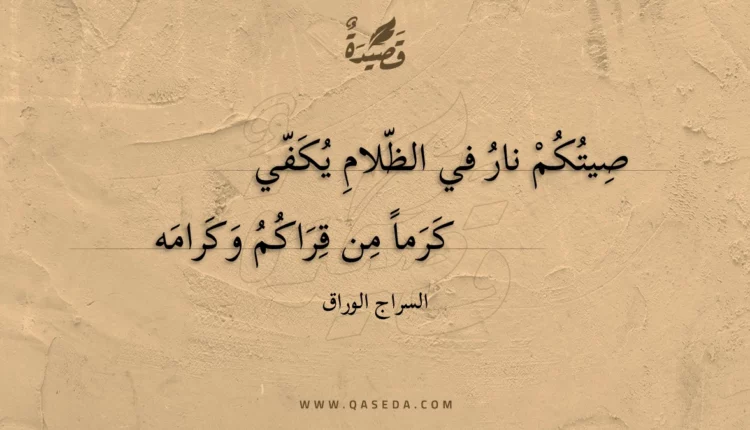 قَصِيدَةٌ
صِيتُكُمْ نارُ في الظّلامِ يُكَفّي
كَرَماً مِن قِرَاكُمُ وَكَرامَه
السراج الوراق
WWW.QASEDA.COM